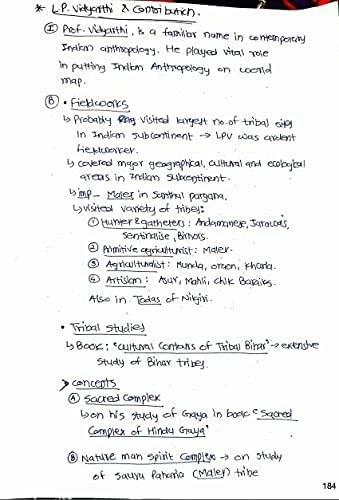 * L.P. Vidyarthi & Contribution.
① Prof. Vidyarthi, is a familiar name in contemporary
Indian anthropology. He played vital role
in putting Indian Anthropology on world
map.
Ⓑ • Fieldworks
↳ Probably visited largest no. of tribal sites
in Indian subcontinent → LPV was ardent
fieldworker.
↳ covered major geographical, cultural and ecological
areas in Indian subcontinent.
↳ imp – Maler in Santhal pargana.
↳ visited variety of tribes:
① Hunter & gatherers: Andamanese, Jarawas,
Sentinalise, Birhors.
② Primitive agriculturist: Maler.
③ Agriculturalist: Munda, oraon, Kharia.
④ Artisian: Asur, Mahli, Chik Baraiks.
Also in Todas of Nilgiri.
• Tribal studies
↳ Book: "Cultural Contours of Tribal Bihar" → extensive
study of Bihar tribes.
➢ concepts
Ⓐ Sacred Complex
↳ on his study of Gaya in book "Sacred
Complex of Hindu Gaya"
Ⓑ Nature man spirit Complex → on study
of Sauru Paharia (Maler) tribe
184